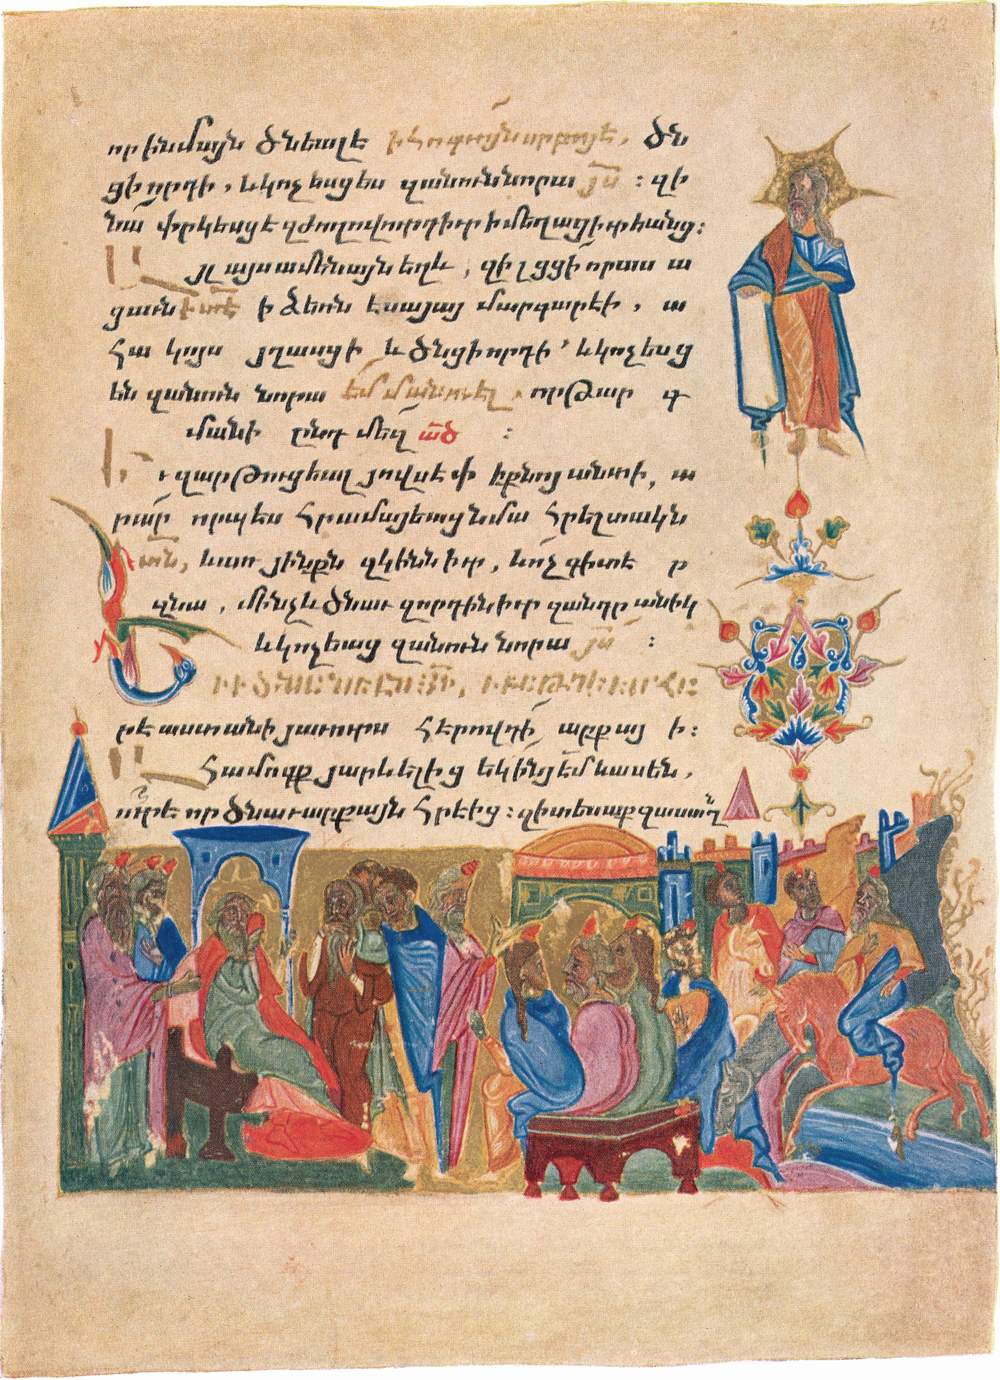 որ ինմայն ծնեալէ ի հոգւոյն սրբոյ է. ծն
ցի որդի, և կոչեսցես զանուն նորա յս : զի
նա փրկեսցէ զժողովուրդ իւր ի մեղաց իւրեանց :
Այլ այս ամենայն եղև, զի լցցի որ ասա
ցաւն ի տէ ի ձեռն եսայայ մարգարէի, ա
հա կոյս յղասցի և ծնցի որդի՛ և կոչեսց
են զանուն նորա էմմանուէլ. որ թար գ
մանի ընդ մեզ ած :
Եւ զարթուցեալ յովսէփ ի քնոյ անտի, ա
րար որպես հրամայեաց նմա հրեշտակն
տն, և առ յինքն զկինն իւր, և ոչ գիտէ ր
զնա, մինչև ծնաւ զորդին իւր զանդր անիկ
և կոչեաց զանուն նորա յս :
Եւ ի ծնանել յի, ի բեթղեհէմ հ
րէաստանի յաւուրս հերովդի արքայ ի :
Ահա մոգք յարևելից եկին յէմ և ասեն,
ուր է որ ծնաւ արքայն հրէից : զի տեսաք զաստղ